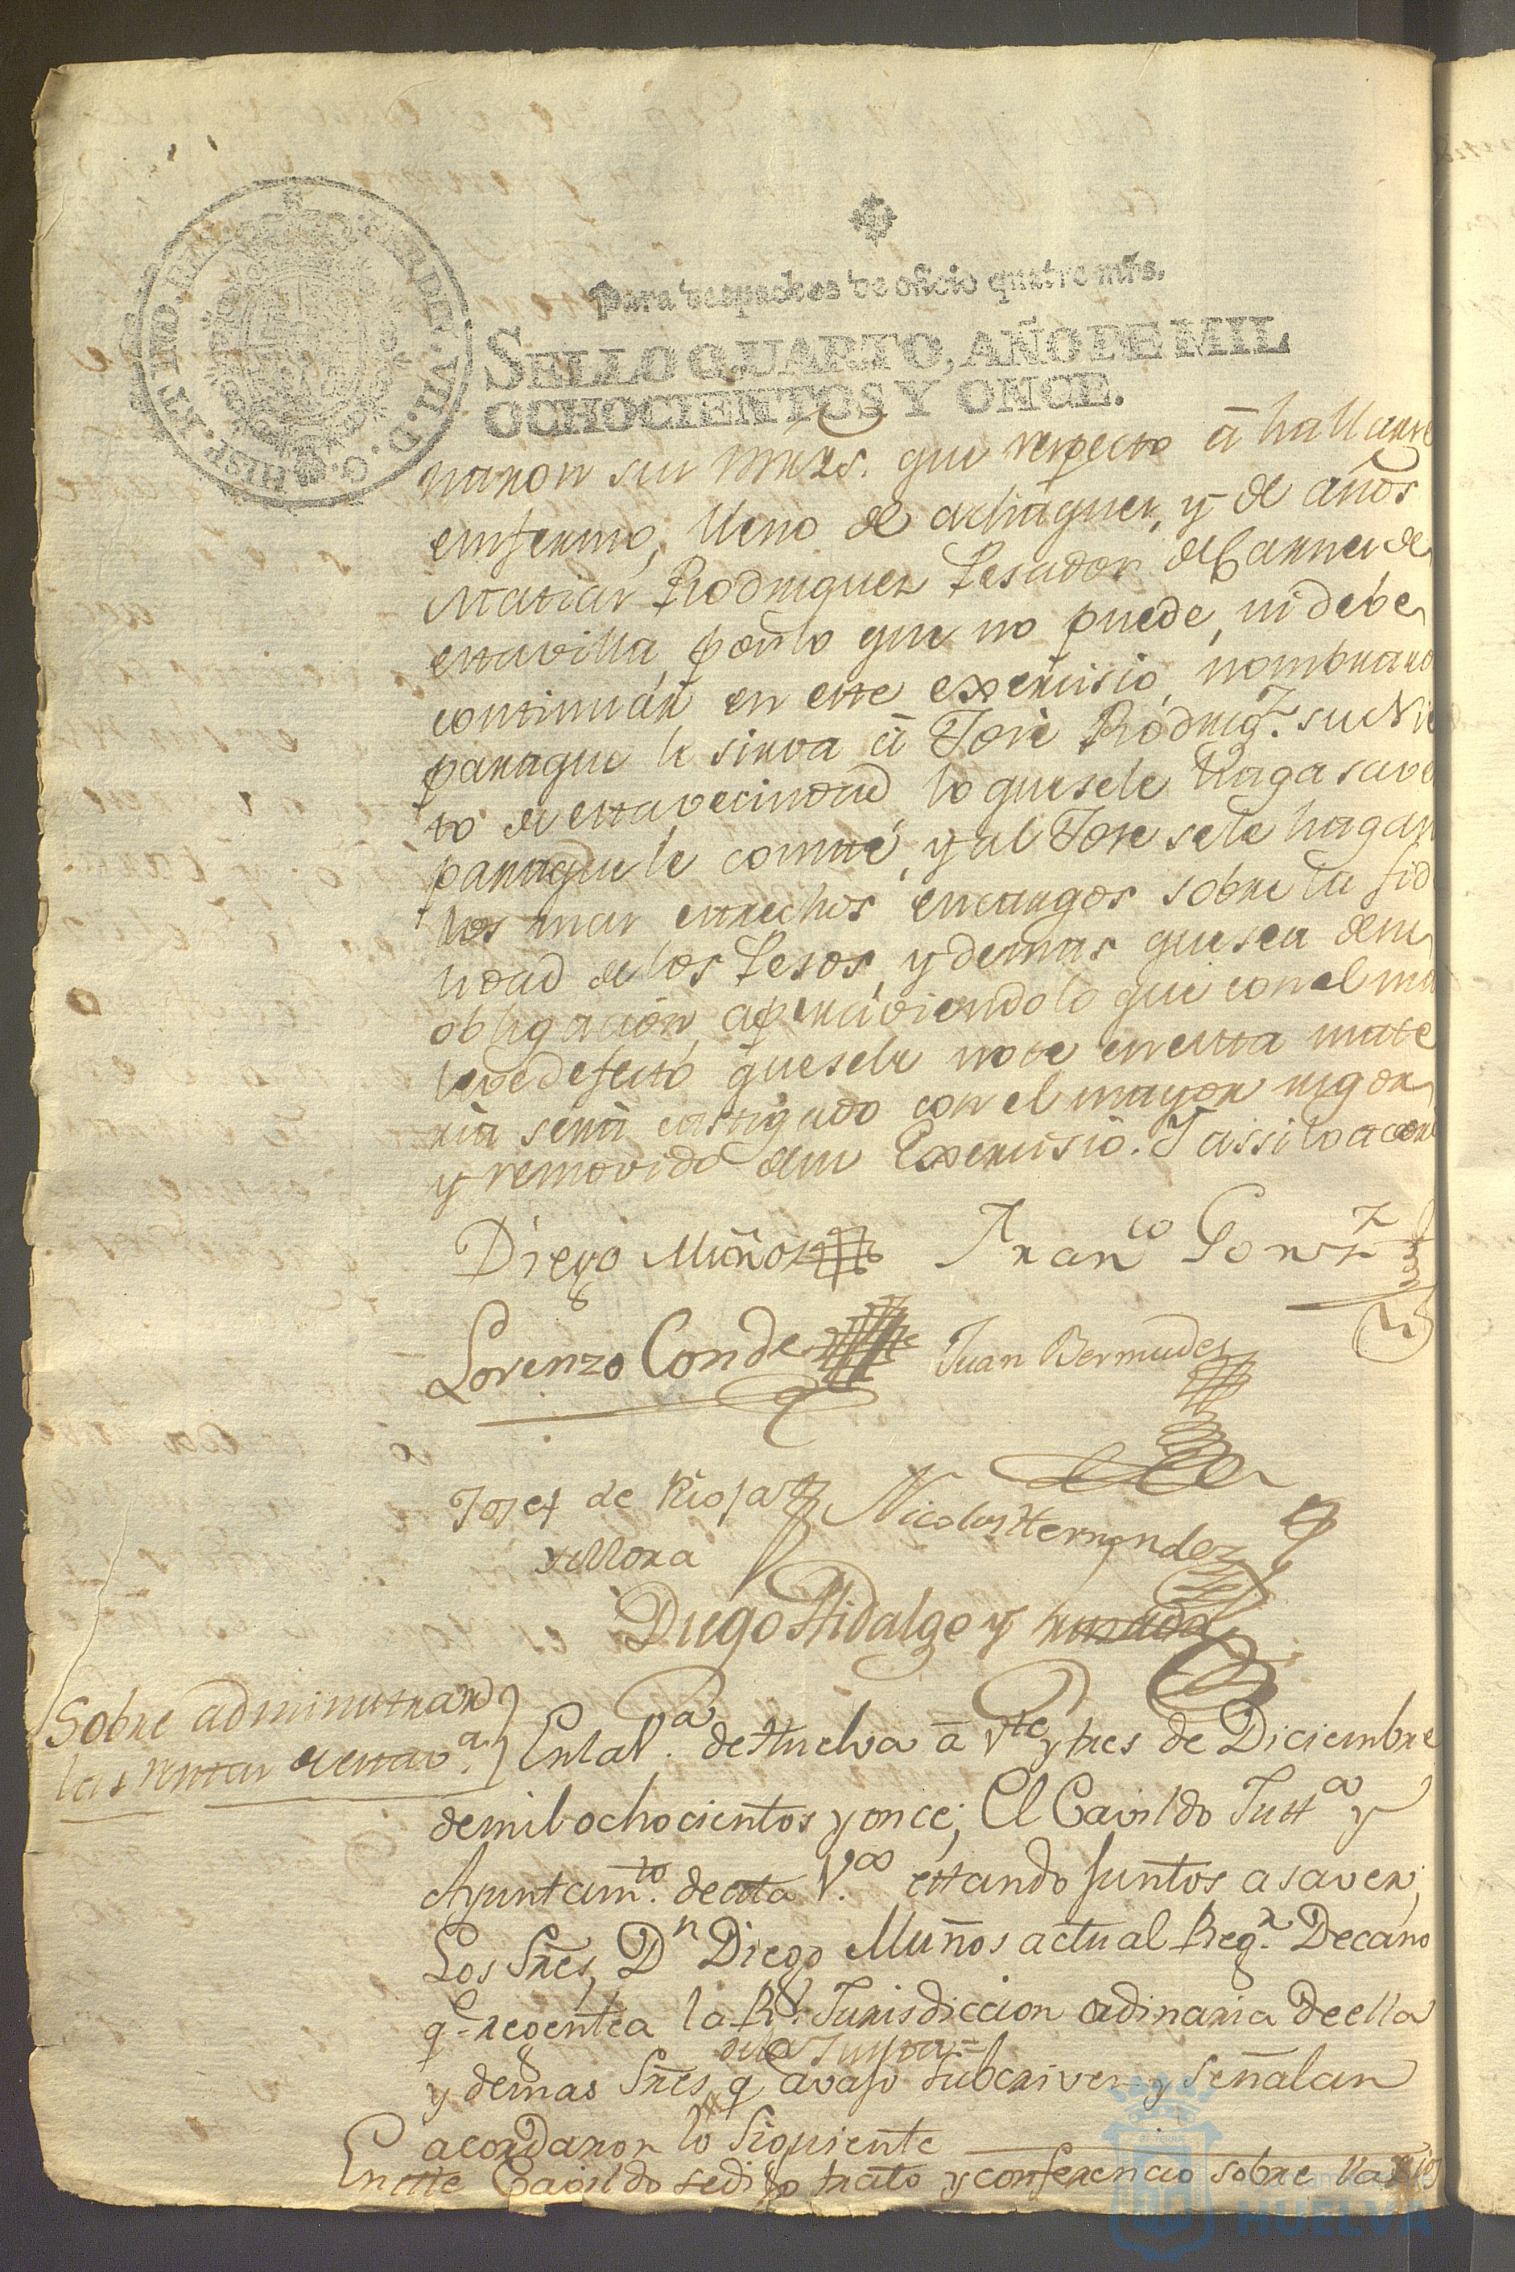 Para despachos de oficio quatro mrs.
SELLO QUARTO, AÑO DE MIL
OCHOCIENTOS Y ONCE.
naron sus mrzs. que respecto â hallarse
enfermo, lleno de achaques, y de años
Matias Rodriguez Pesador de Carnes de
esta villa por lo que no puede, ni debe
continuar en este exercisio, nombraro
para que le sirva â Jose Rodrig.z su Nie
to de esta vecindad lo que se le haga save
para que le conste, y al Jose se le hagan
los mas estrechos encargos sobre la fid
lidad de los Pesos, y demas que sea de su
obligacion, aperciviendolo que con el mas
leve defecto que se le note en esta mate
ria será castigado con el mayor rigor
y removido de su Exercisio. Y assi lo acor
Diego Muñoz Fran.co Gonz.z
Lorenzo Conde Juan Bermudez
Josef de Rioja Nicolas Hernandez
y Mora
Diego Hidalgo y
Sobre administrar
las rentas de esta v.a
En la V.a de Huelva â v.te y tres de Diciembre
de mil ochocientos y once; El Cavildo Just.a y
Ayuntam.to de esta V.a estando juntos a saver,
Los Sres, D.n Diego Muños actual Reg.r Decano
q.e regentea la R.l Jurisdiccion ordinaria de ella
de la Junta=
y demas Sres q avajo subcriven y señalan
acordaron lo siguiente
En este Cavildo se dijo trato y conferencio sobre varios
HUELVA